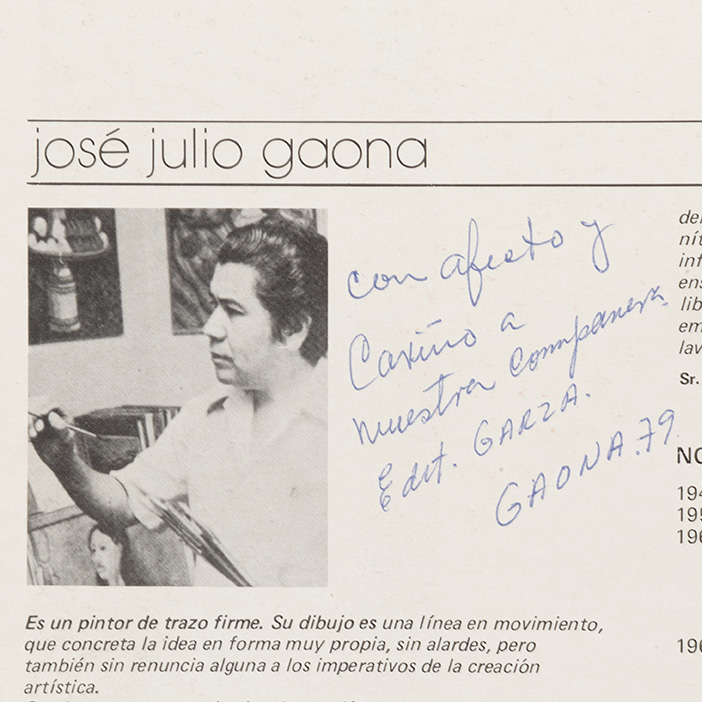 josé julio gaona
con afecto y
Cariño a
nuestra Compañera
Edit. GARZA.
GAONA.79
Es un pintor de trazo firme. Su dibujo es una línea en movimiento,
que concreta la idea en forma muy propia, sin alardes, pero
también sin renuncia alguna a los imperativos de la creación
artística.
Sr.